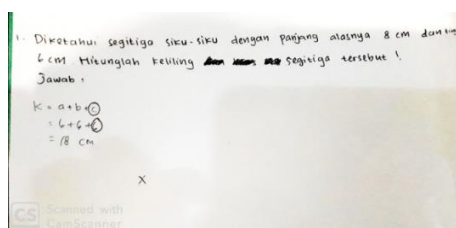 1. Diketahui segitiga siku-siku dengan panjang alasnya 8 cm dan
6 cm. Hitunglah keliling segitiga tersebut !
Jawab :
K = a+b+c
= 6+6+6
= 18 cm
X
CS Scanned with
CamScanner